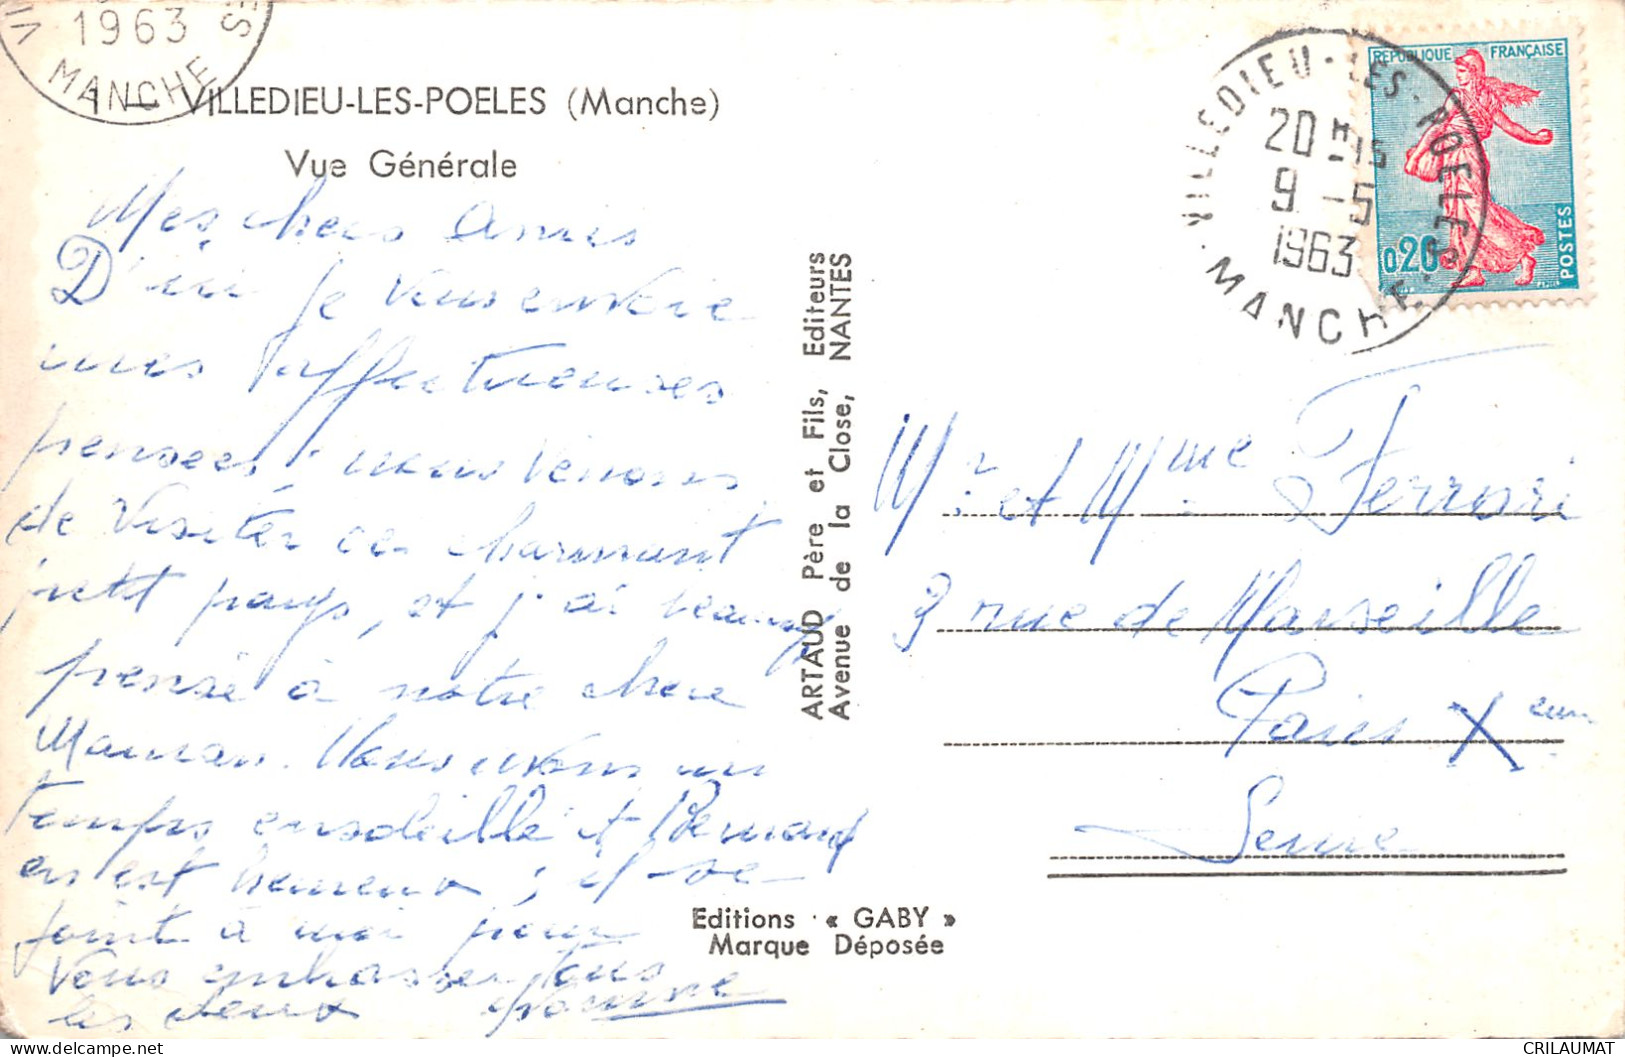 1963
MANCHE
1 — VILLEDIEU-LES-POELES (Manche)
Vue Générale
Mes chers Amis
D'ici je vous envoie
mes affectueuses
pensées, nous venons
de visiter ce charmant
petit pays, et j'ai beaucoup
pensé à notre chère
Maman. Nous avons un
temps ensoleillé et Bernard
en est heureux ; il se
joint à moi pour
vous embrasser tous
les deux
ARTAUD Père et Fils, Editeurs
Avenue de la Close, NANTES
Editions « GABY »
Marque Déposée
VILLEDIEU-LES-POELES
20H15
9-5
1963
MANCHE
REPUBLIQUE FRANÇAISE
0,20
POSTES
Mr et Mme Ferrari
3 rue de Marseille
Paris Xeme
Seine
CRILAUMAT